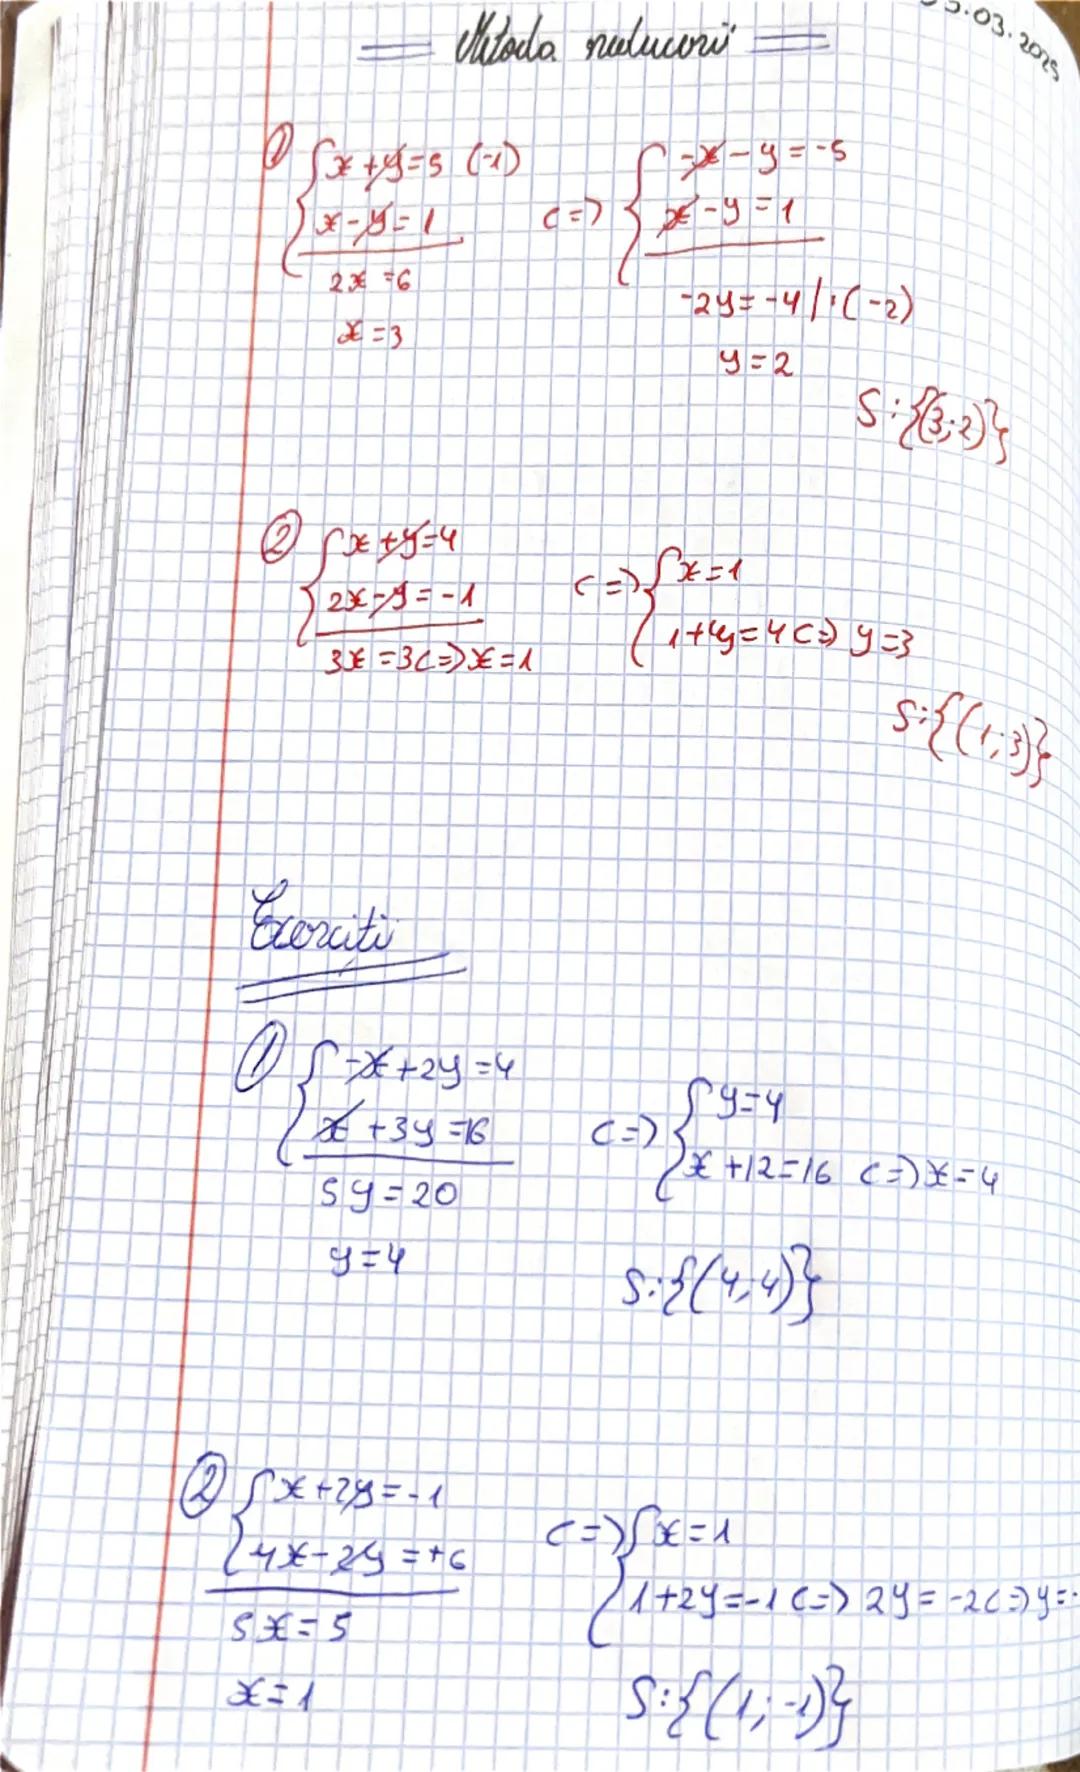 .03.2025
Metoda reducerii
① { x+y=5 (-1)
x-y=1
2x=6
x=3
<=> { -x-y=-5
x-y=1
-2y=-4 |:(-2)
y=2
S:{(3;2)}
② { x+y=4
2x-y=-1
3x=3<=>x=1
<=> { x=1
1+y=4<=> y=3
S:{(1;3)}
Exerciții
① { -x+2y=4
x+3y=16
5y=20
y=4
<=> { y=4
x+12=16 <=>x=4
S:{(4;4)}
② { x+2y=-1
4x-2y=+6
5x=5
x=1
<=> { x=1
1+2y=-1<=> 2y=-2<=>y=-
S:{(1;-1)}